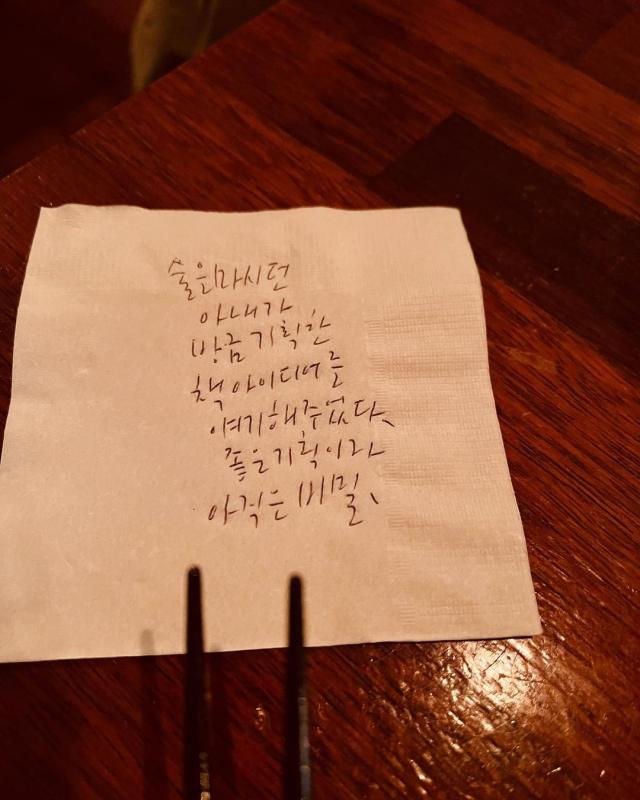 술을마시던
아내가
방금 기획한
책 아이디어를
얘기해주었다.
좋은기획이라
아직은 비밀.